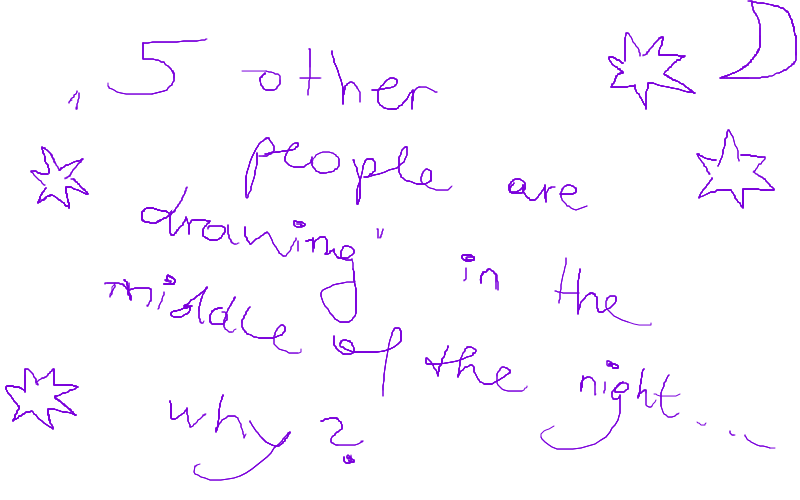 "5 other
people are
drawing" in the
middle of the night...
why?